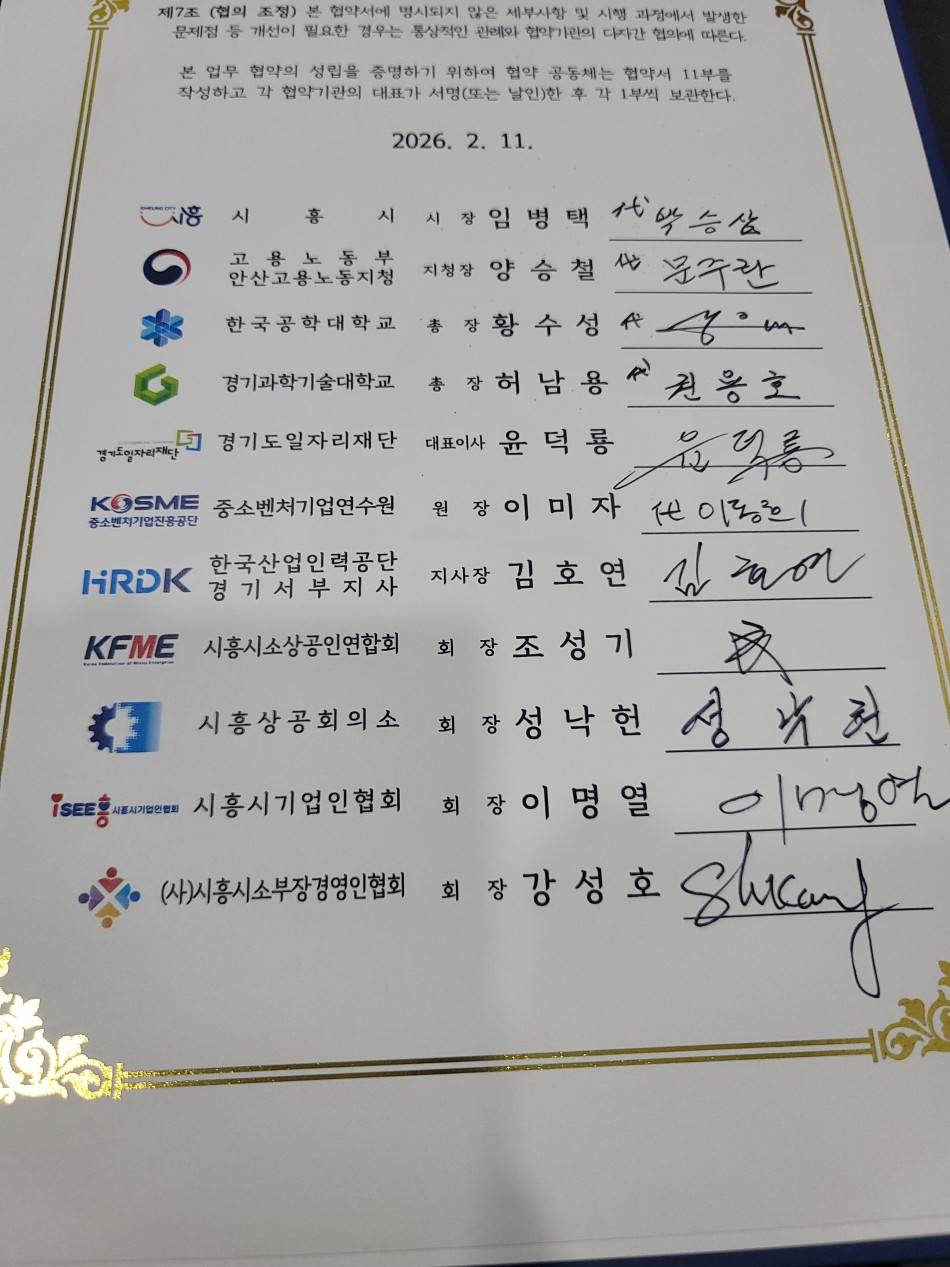 제7조 (협의 조정) 본 협약서에 명시되지 않은 세부사항 및 시행 과정에서 발생한
문제점 등 개선이 필요한 경우는 통상적인 관례와 협약기관의 다자간 협의에 따른다.
본 업무 협약의 성립을 증명하기 위하여 협약 공동체는 협약서 11부를
작성하고 각 협약기관의 대표가 서명(또는 날인)한 후 각 1부씩 보관한다.
2026. 2. 11.
시흥 시 흥 시 시 장 임 병 택 代 박승삼
고 용 노 동 부
안산고용노동지청 지청장 양 승 철 代 문주란
한국공학대학교 총 장 황 수 성 代
경기과학기술대학교 총 장 허 남 용 代 권용호
경기도일자리재단 경기도일자리재단 대표이사 윤 덕 룡 윤덕룡
KOSME 중소벤처기업진흥공단 중소벤처기업연수원 원 장 이 미 자 代
HRDK 한국산업인력공단
경 기 서 부 지 사 지사장 김 호 연 김호연
KFME 시흥시소상공인연합회 회 장 조 성 기
시흥상공회의소 회 장 성 낙 헌 성낙헌
iSEE흥 시흥시기업인협회 시흥시기업인협회 회 장 이 명 열 이명열
(사)시흥시소부장경영인협회 회 장 강 성 호 ShKang